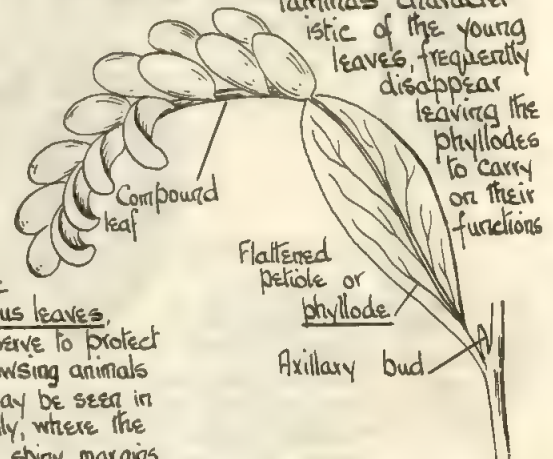 laminas character-
istic of the young
leaves, frequently
disappear
leaving the
phyllodes
to carry
on their
functions
Compound
leaf
Flattened
petiole or
phyllode
Axillary bud
us leaves,
erve to protect
wsing animals
ay be seen in
ly, where the
spiny margins